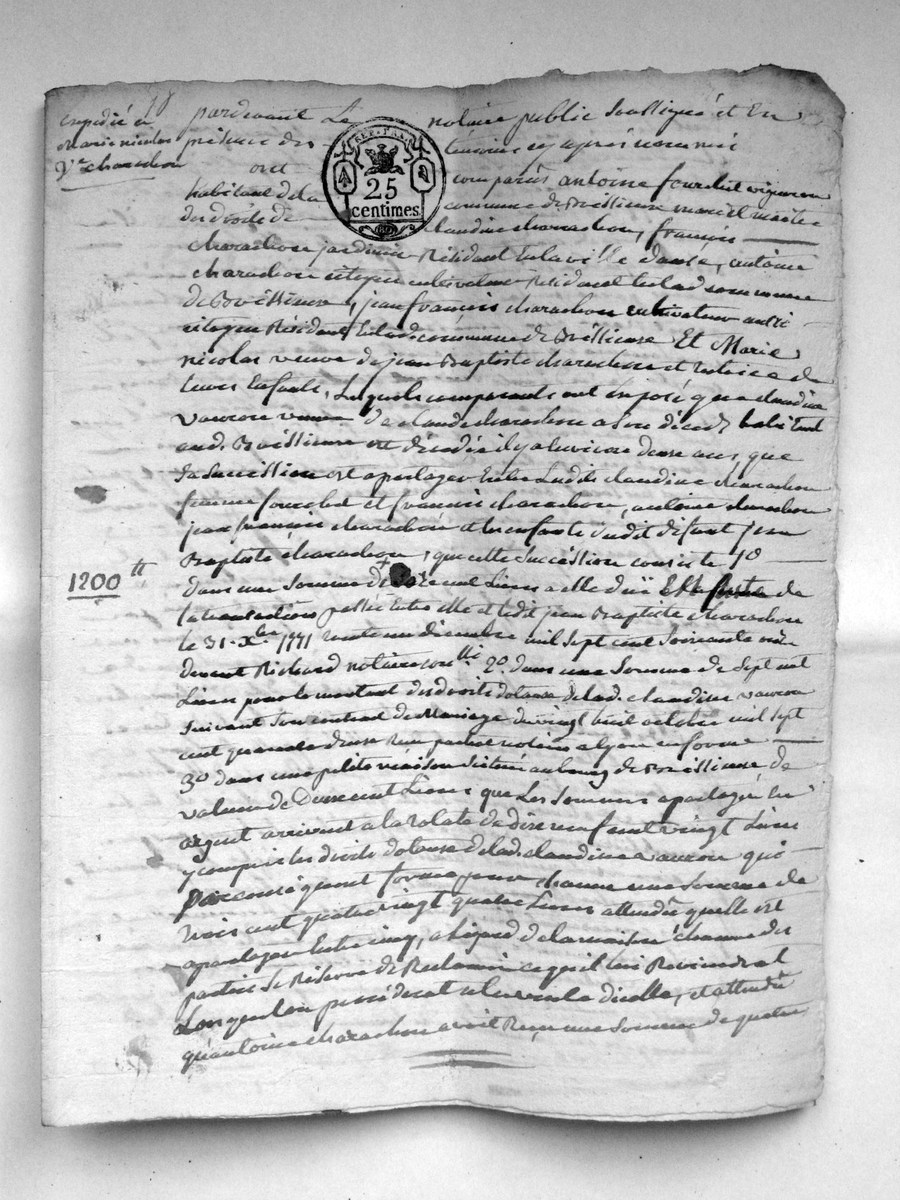 Expedié à
Marie nicolas
Vve charachon
pardevant Le notaire public Soussigné et En
présence des témoins cy après nommés
REP. FRA.
25
centimes
ont comparus antoine fourchet vigneron
habitant de la commune de Brossieuse mari et maitre
des droits de claudine charachon, francois
charachon jardinier Résidant en la ville danse, antoine
charachon citoyen cultivateur Résidant en lad. commune
de, jean francois charachon cultivateur aussi
citoyen Résidant en lad. commune de Et Marie
nicolas veuve de jean Baptiste charachon et tutrice de
leurs Enfants, Lesquels comparants ont Exposé que claudine
vauron veuve de claude charachon a Son décedz habitant
aud. est décédée il y a Environ douse ans que
Sa Succession est a partager Entre Ladite claudine charachon
femme fourchet et francois charachon, antoine charachon
jean francois charachon et les enfants dudit défunt jean
Baptiste charachon, que cette Succession consiste 1o
1200 tt
dans une Somme de cent Livres a elle due de
la transaction passée Entre elle et ledit jean Baptiste charachon
le 31. Xbre 1771 trente un décembre mil sept cent Soixante onze
devant Richard notaire 2o dans une Somme de Sept cent
Livres pour le montant des droits dotaux de lad. claudine vauron
Suivant Son contrat de Mariage du vingt huit octobre mil sept
cent quarante deux notaire a lyon en forme
3o dans une petite maison Scituée au bourg de de
valeur de Deux cent Livres que Les Sommes a partager En
argent arrivent a la totale de dix neuf cent vingt Livres
y compris les droits dotaux de lad. claudine vauron qui
Par conséquent forme pour chacun une Somme de
trois cent quatre vingt quatre Livres attendu quelle est
a partager Entre cinq, a légard de la maison chacune des
parties Se Réserve de Reclamer ce quil lui Reviendrat
Lorsqu'on procéderat a la vente dicelle, et attendu
qu'antoine charachon avoit Reçu une Somme de quatre